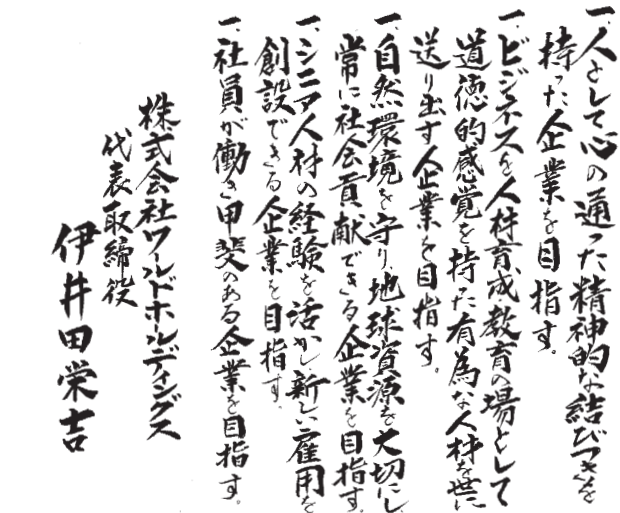 一、人として心の通った精神的な結びつきを
持った企業を目指す。
一、ビジネスを人材育成、教育の場として
道徳的感覚を持った有為な人材を世に
送り出す企業を目指す。
一、自然環境を守り、地球資源を大切にし、
常に社会貢献できる企業を目指す。
一、シニア人材の経験を活かし新しい雇用を
創設できる企業を目指す。
一、社員が働き甲斐のある企業を目指す。
株式会社ワールドホールディングス
代表取締役
伊井田栄吉